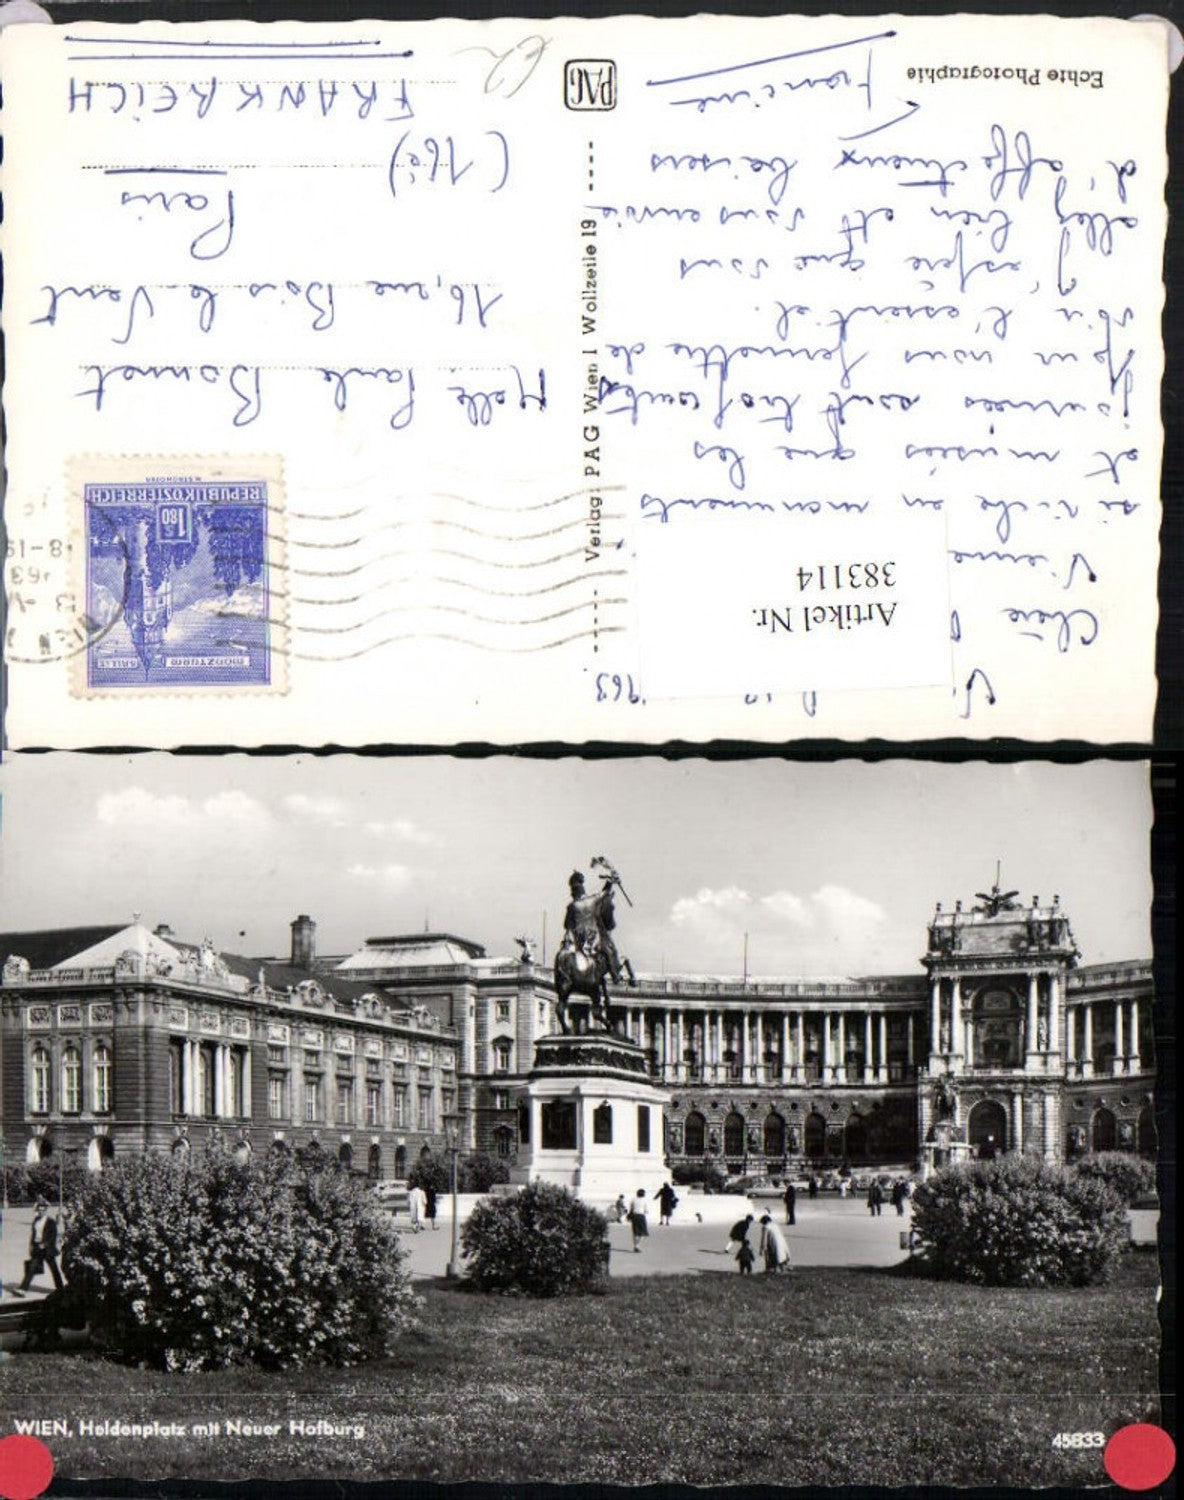 Echte Photographie
PAG
Verlag: PAG Wien I Wollzeile 19
1963
Artikel Nr.
383114
Chère
Vienne
si riche en monuments
et musées que les
journées sont trop courtes
pour nous permettre de
voir l'essentiel.
J'espère que vous
allez bien et vous envoie
d'affectueux baisers
Francine
REPUBLIK ÖSTERREICH
1.80
S
MÜNZTURM
HALL I.T.
WIEN
63
18-19
Melle Paule Bonnet
16, rue Bois le Vent
Paris
(16è)
FRANKREICH
WIEN, Heldenplatz mit Neuer Hofburg
45833